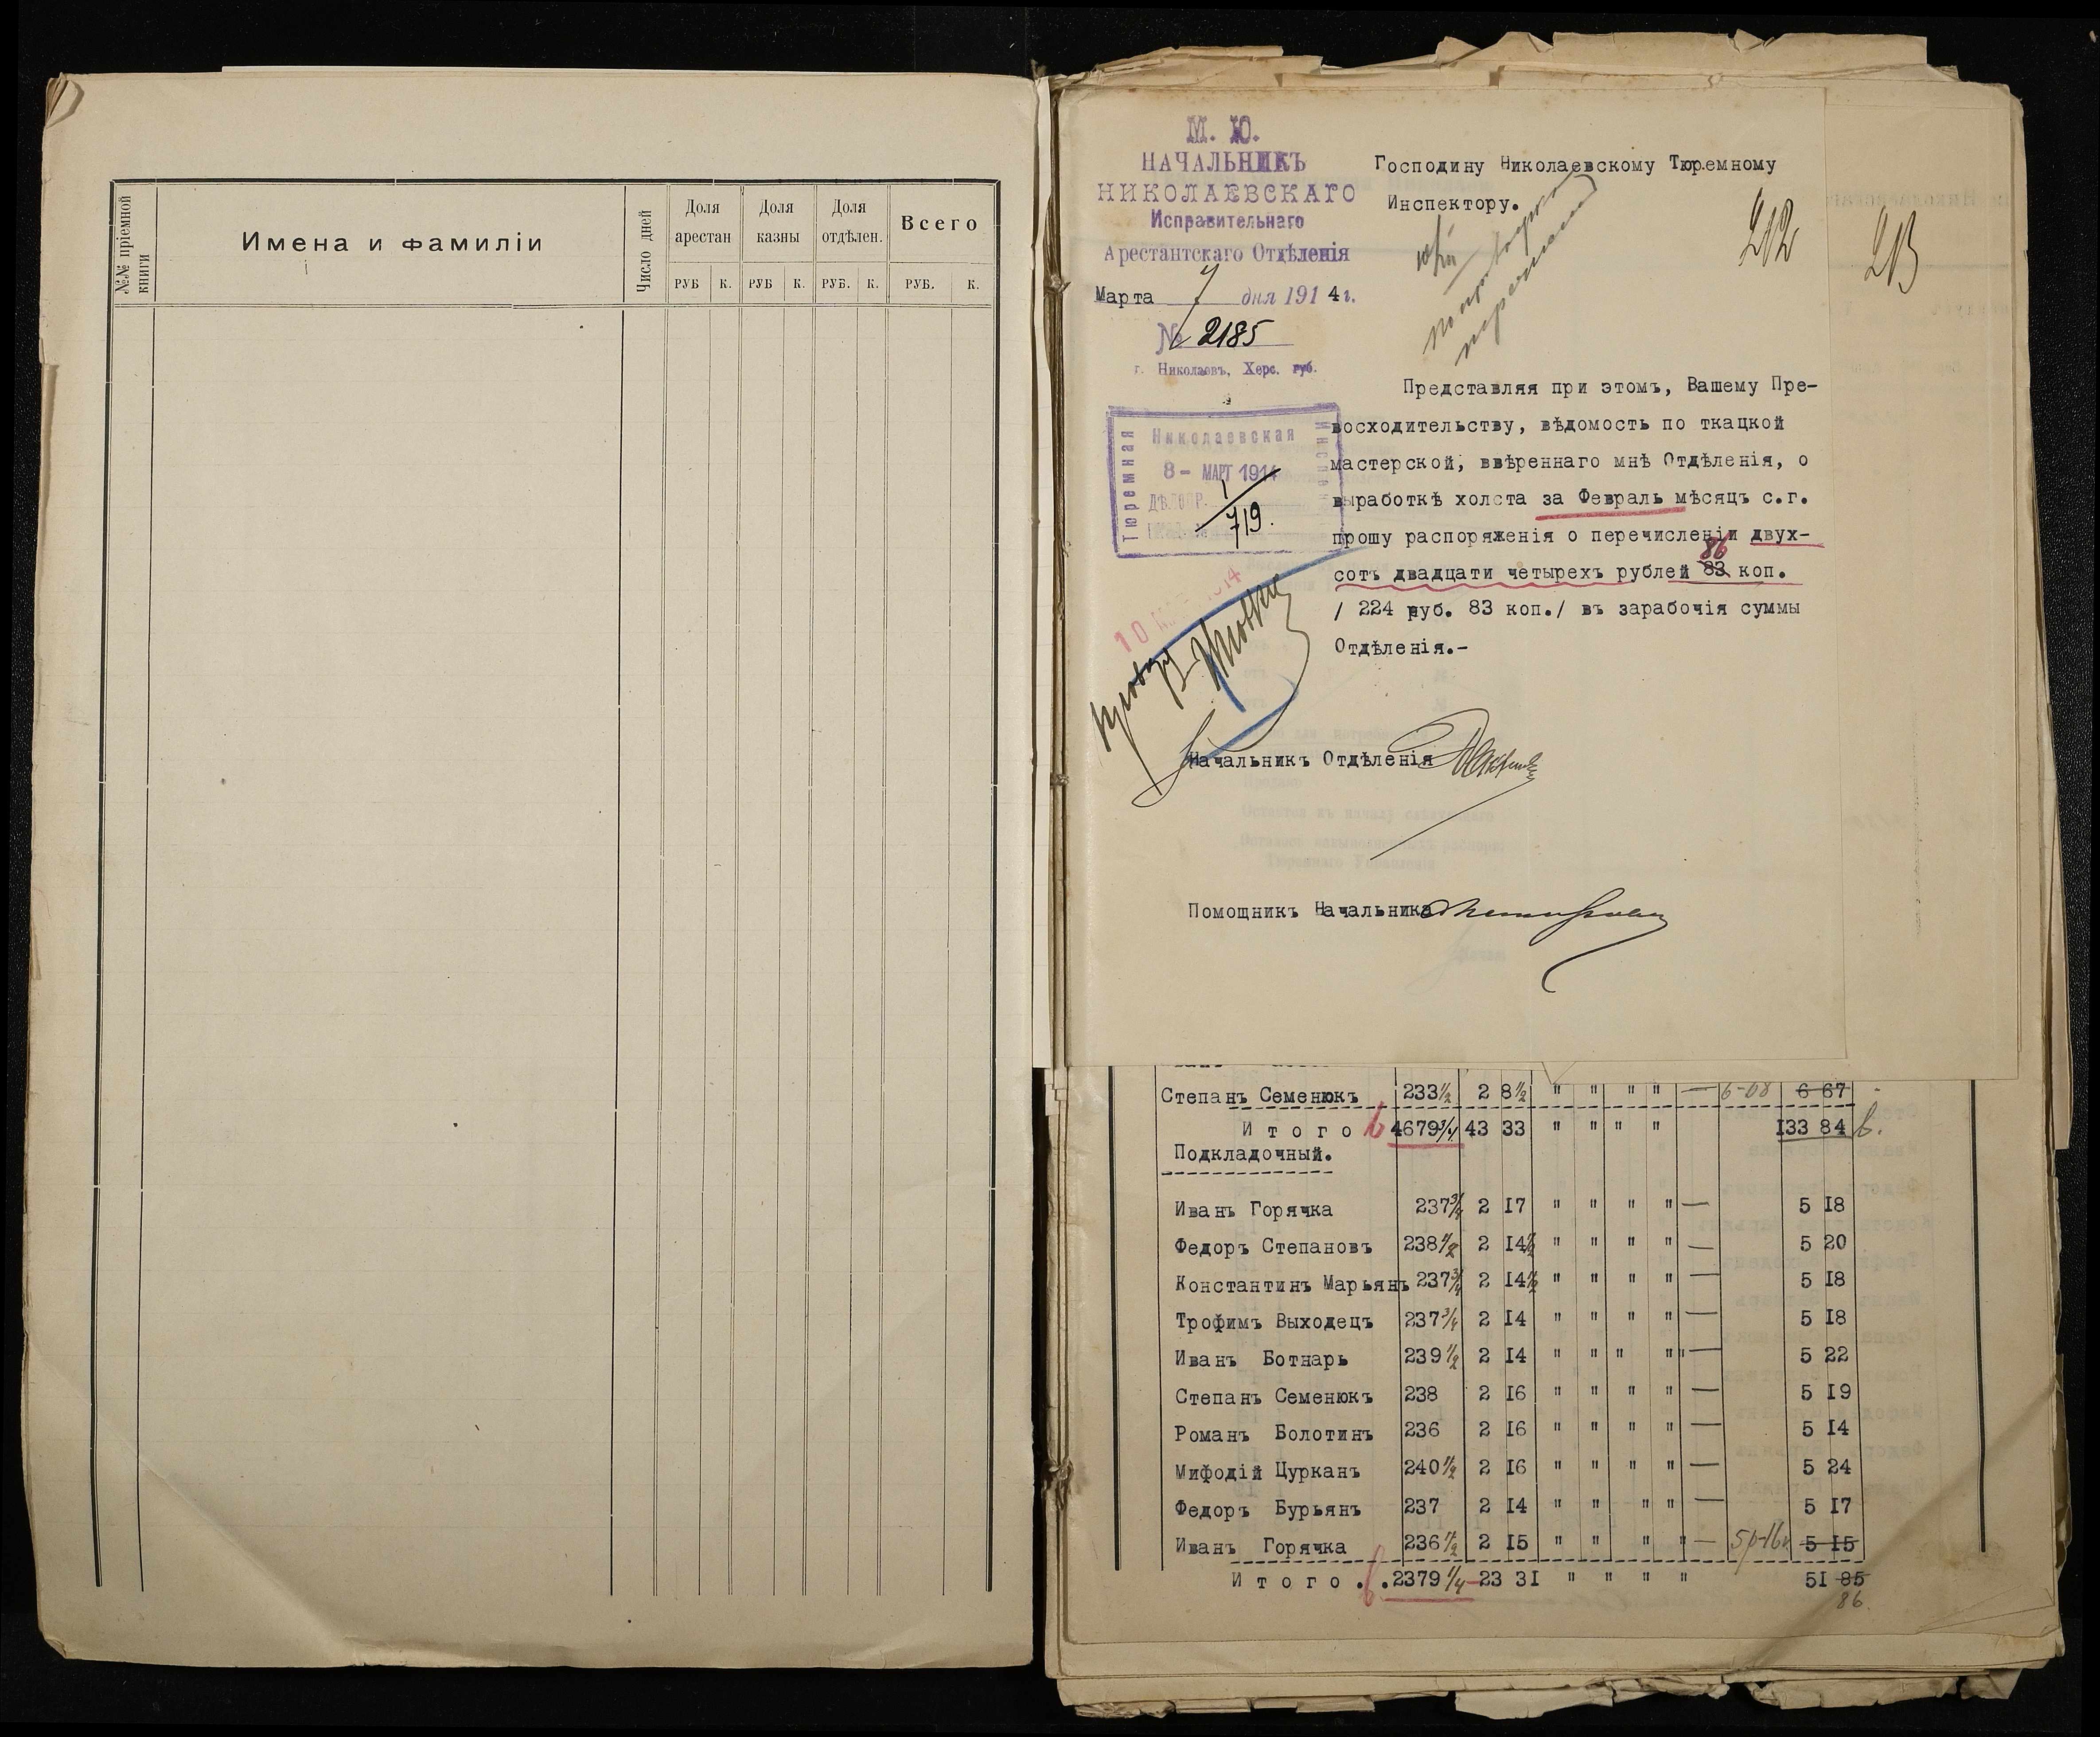 №№ пріемной книги
Имена и фамиліи
Число дней
Доля арестан
Доля казны
Доля отдѣлен.
Всего
РУБ К. РУБ К. РУБ. К. РУБ. К.
М. Ю.
НАЧАЛЬНИКЪ
НИКОЛАЕВСКАГО
Исправительнаго
Арестантскаго Отдѣленія
Марта 7 дня 1914 г.
№ 2185
г. Николаевъ, Херс. губ.
Господину Николаевскому Тюремному
Инспектору.
212
213
Тюремная
Николаевская
8 - МАРТ 1914
719.
Представляя при этомъ, Вашему Пре-
восходительству, вѣдомость по ткацкой
мастерской, ввѣреннаго мнѣ Отдѣленія, о
выработкѣ холста за Февраль мѣсяцъ с.г.
прошу распоряженія о перечисленіи двух-
86
сотъ двадцати четырехъ рублей 83 коп.
/ 224 руб. 83 коп./ въ зарабочія суммы
Отдѣленія.-
Начальникъ Отдѣленія
Помощникъ Начальника
Степанъ Семенюкъ 233 1/2 2 8 1/2 " " " " — 6-68 6 67
Итого 4679 3/4 43 33 " " " " 133 84
Подкладочный.
Иванъ Горячка 237 3/4 2 17 " " " " — 5 18
Федоръ Степановъ 238 1/2 2 14 1/2 " " " " — 5 20
Константинъ Марьянъ 237 3/4 2 14 1/2 " " " " — 5 18
Трофимъ Выходецъ 237 3/4 2 14 " " " " — 5 18
Иванъ Ботнарь 239 1/2 2 14 " " " " — 5 22
Степанъ Семенюкъ 238 2 16 " " " " — 5 19
Романъ Болотинъ 236 2 16 " " " " — 5 14
Мифодій Цурканъ 240 1/2 2 16 " " " " — 5 24
Федоръ Бурьянъ 237 2 14 " " " " — 5 17
Иванъ Горячка 236 1/2 2 15 " " " " — 5р-16к 5 15
Итого . . 2379 1/4 23 31 " " " " 51 85
86